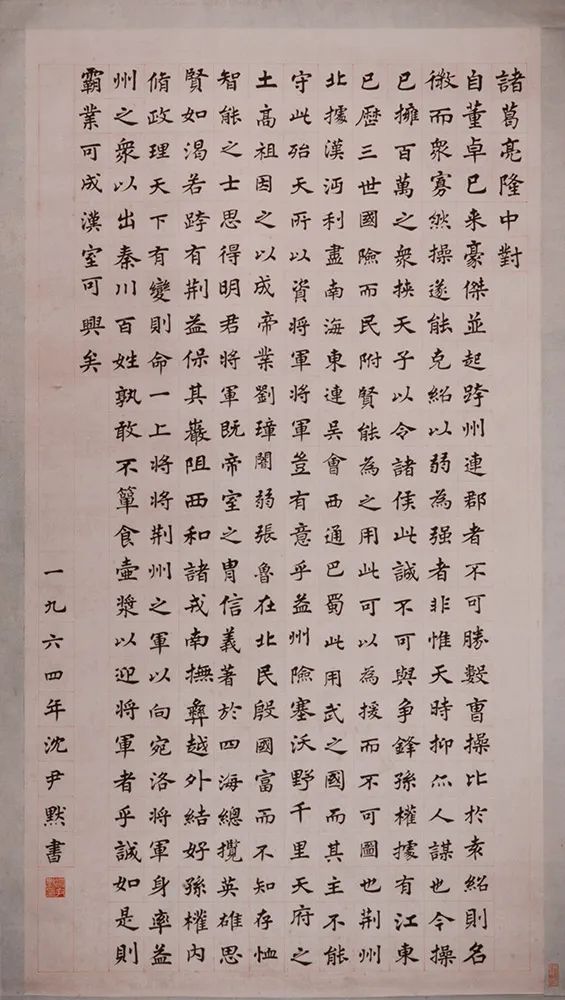 諸葛亮隆中對
自董卓已来豪傑並起跨州連郡者不可勝數曹操比於袁紹則名
微而衆寡然操遂能克紹以弱為强者非惟天時抑亦人謀也今操
已擁百萬之衆挾天子以令諸侯此誠不可與争鋒孫權據有江東
已歷三世國險而民附賢能為之用此可以為援而不可圖也荆州
北據漢沔利盡南海東連吳會西通巴蜀此用武之國而其主不能
守此殆天所以資将軍将軍豈有意乎益州險塞沃野千里天府之
土高祖因之以成帝業劉璋闇弱張魯在北民殷國富而不知存恤
智能之士思得明君将軍既帝室之冑信義著於四海總攬英雄思
賢如渴若跨有荆益保其巖阻西和諸戎南撫彝越外結好孫權内
脩政理天下有變則命一上将将荆州之軍以向宛洛将軍身率益
州之衆以出秦川百姓孰敢不簞食壺漿以迎将軍者乎誠如是則
霸業可成漢室可興矣
一九六四年沈尹默書